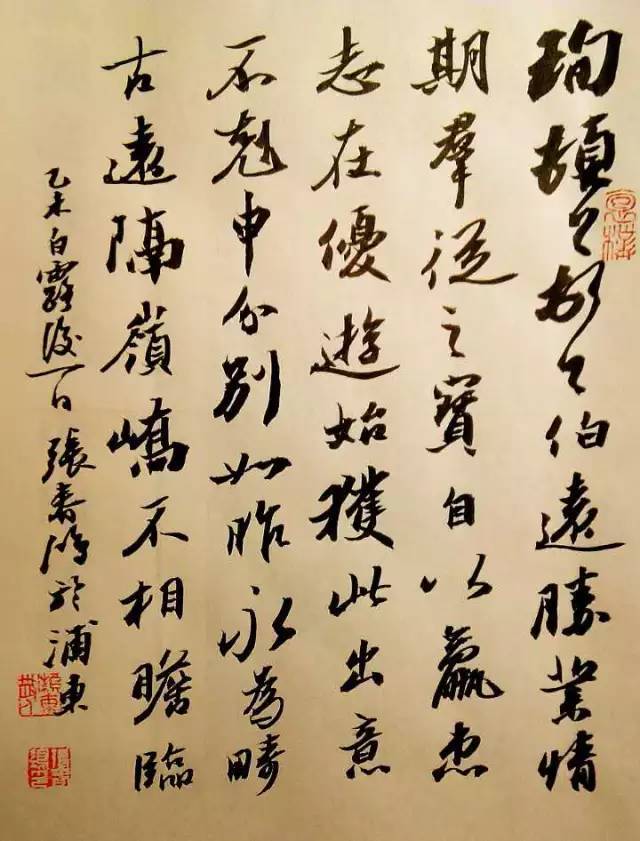 珣頓首頓首伯遠勝業情
期羣從之寶自以羸患
志在優遊始獲此出意
不剋申分別如昨永為疇
古遠隔嶺嶠不相瞻臨
乙未白露後一日張春於浦東